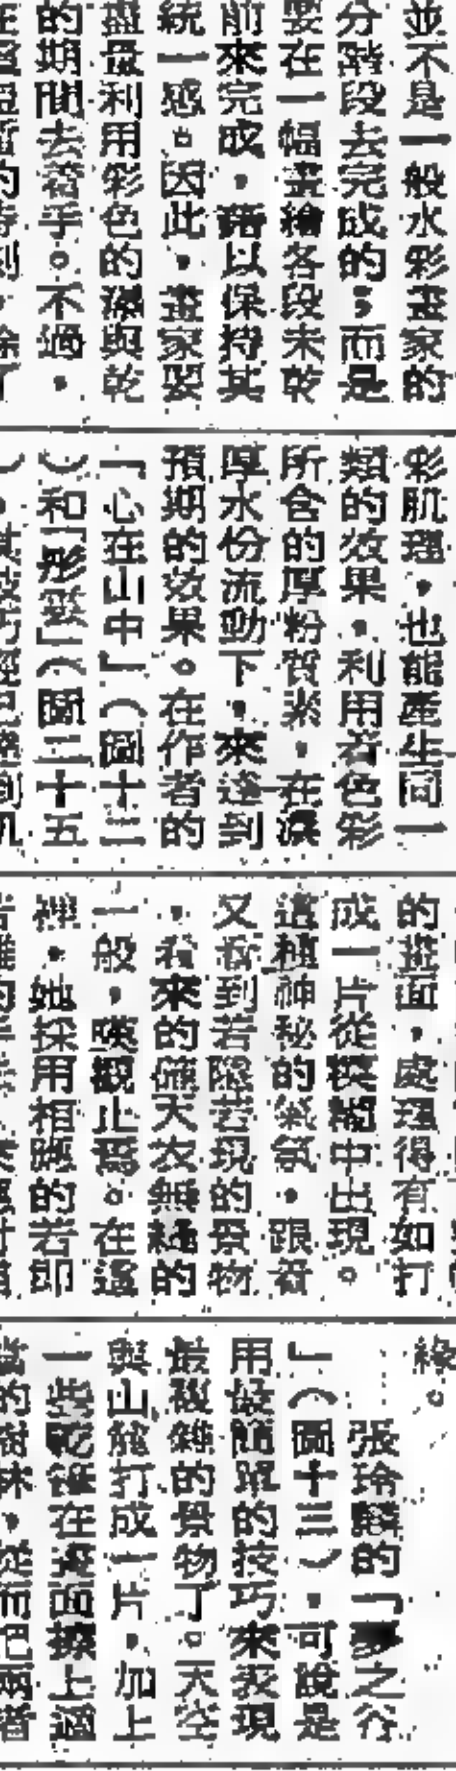 並不是一般水彩畫家的
分階段去完成的；而是
要在一幅畫繪各段未乾
前來完成，藉以保持其
統一感。因此，畫家要
盡量利用彩色的濕與乾
的期間去著手。不過，
彩肌理，也能產生同一
類的效果。利用着色彩
所含的厚粉質素，在濕
厚水份流動下，來達到
預期的效果。在作者的
「心在山中」（圖十二
）和「形變」（圖二十五
的畫面，處理得有如打
成一片從模糊中出現。
這種神秘的氣氛，跟著
又看到若隱若現的景物
，看來的確天衣無縫的
一般，嘆觀止焉。在這
裡，她採用相應的若即
緣。
張玲麟的「夢之谷
」（圖十三），可說是
用最簡單的技巧來表現
最複雜的景物了。天空
與山能打成一片，加上
一些乾筆在畫面擦上適
的樹林，從而把兩者